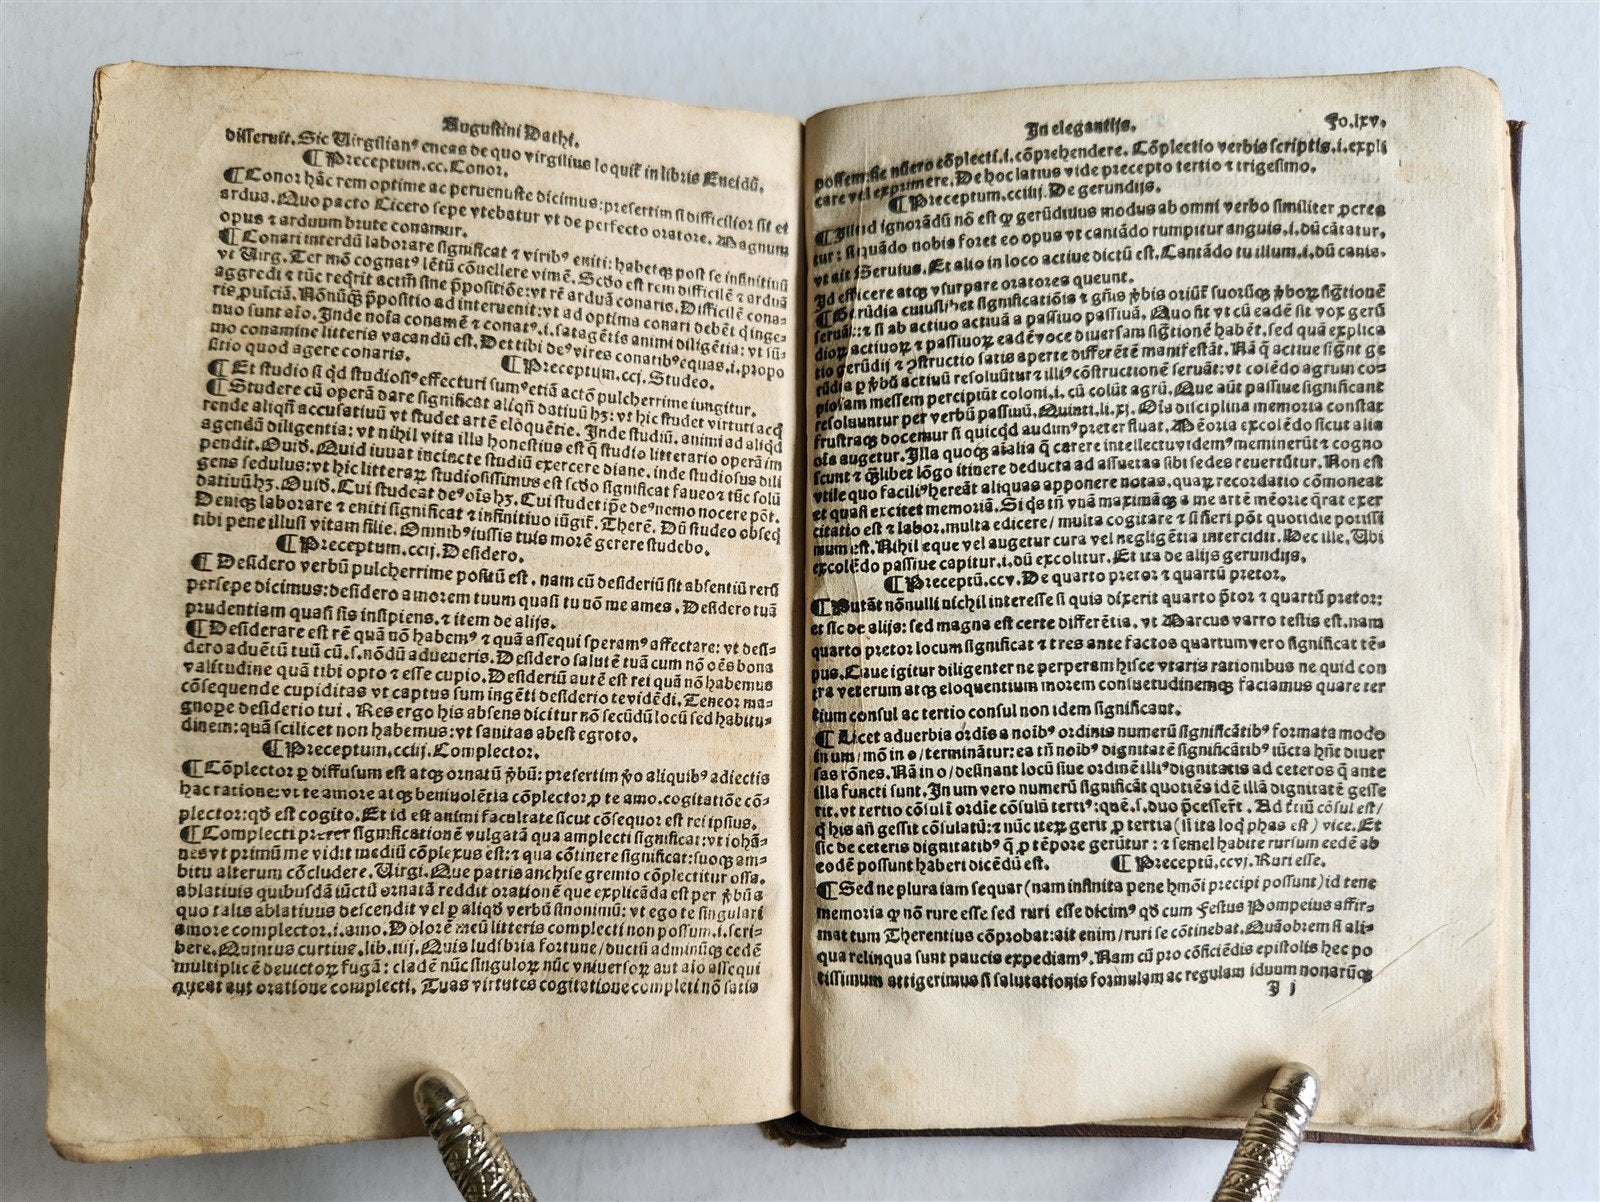 Augustini Dathi.
disseruit. Sic Uirgilianꝰ eneas de quo virgilius loquiť in libris Eneidū.
¶ Preceptum. cc. Conor.
¶ Conor hāc rem optime ac peruenuste dicimus: presertim si difficilior sit et
ardua. Quo pacto Cicero sepe vtebatur vt de perfecto oratore. Magnum
opus ⁊ arduum brute conamur.
¶ Conari interdū laborare significat ⁊ viribꝰ eniti: habetqꝫ post se infinitiuū
vt Uirg. Ter mō cognatꝰ lētū cōuellere vimē. Scďo est rem difficilē ⁊ arduā
aggredi ⁊ tūc reqrit actm̄ sine p̄positiōe: vt rē arduā conaris. Difficilē cona-
ris ꝓuīciā. Nōnūqꝫ p̄positio ad interuenit: vt ad optima conari debēt q̄ inge-
nuo sunt aīo. Inde noīa conamē ⁊ conatꝰ. i. satagētis animi diligētia: vt sū-
mo conamine litteris vacandū est. Det tibi deꝰ vires conatibꝰ equas. i. propo
sitio quod agere conaris. ¶ Preceptum. ccj. Studeo.
¶ Et studio si qd studiosiꝰ effecturi sumꝰ etiā actō pulcherrime iungitur.
¶ Studere cū operā dare significat aliqn̄ datiuū hꝫ: vt hic studet virtuti acq
rende aliqn̄ accusatiuū vt studet artē eloquētie. Inde studiū. animi ad aliqd
agendū diligentia: vt nihil vita illa honestius est q̄ studio litterario operā im
pendit. Ouiď. Quid iuuat incincte studiū exercere diane. inde studiosus dili
gens sedulus: vt hic litteraꝝ studiosissimus est scďo significat faueo ⁊ tūc solū
datiuū hꝫ. Ouiď. Cui studeat deꝰ oīs hꝫ. Cui studet ip̄e deꝰ nemo nocere pōt.
Deniqꝫ laborare ⁊ eniti significat ⁊ infinitiuo iūgiť. Therē. Dū studeo obseq
tibi pene illusi vitam filie. Omnibꝰ iussis tuis morē gerere studebo.
¶ Preceptum. ccij. Desidero.
¶ Desidero verbū pulcherrime positū est. nam cū desideriū sit absentiū rerū
persepe dicimus: desidero amorem tuum quasi tu nō me ames. Desidero tuā
prudentiam quasi sis insipiens. ⁊ item de alijs.
¶ Desiderare est rē quā nō habemꝰ ⁊ quā assequi speramꝰ affectare: vt desi-
dero aduētū tuū cū. s. nōdū adueneris. Desidero salutē tuā cum nō oēs bona
valitudine quā tibi opto ⁊ esse cupio. Desideriū autē est rei quā nō habemus
cōsequende cupiditas vt captus sum ingēti desiderio te vidēdi. Teneor ma-
gnope desiderio tui. Res ergo his absens dicitur nō secūdū locū sed habitu-
dinem: quā scilicet non habemus: vt sanitas abest egroto.
¶ Preceptum. cciij. Complector.
¶ Cōplector ꝑ diffusum est atqꝫ ornatū ꝟbū: presertim ꝟo aliquibꝰ adiectis
hac ratione: vt te amore atqꝫ beniuolētia cōplector ꝓ te amo. cogitatiōe cō-
plector: qď est cogito. Et id est animi facultate sicut cōsequor est rei ipsius.
¶ Complecti preter significationē vulgatā qua amplecti significat: vt iohā-
nes vt primū me vidit mediū cōplexus est: ⁊ qua cōtinere significat: suoqꝫ am-
bitu alterum cōcludere. Uirgi. Que patris anchise gremio cōplectitur ossa.
ablatiuis quibusdā iūctū ornatā reddit orationē que explicāda est per ꝟbū a
quo talis ablatiuus descendit vel ꝑ aliqď verbū sinonimū: vt ego te singulari
amore complector. i. amo. Dolorē meū litteris complecti non possum. i. scri-
bere. Quintus curtius. lib. iiij. Quis ludibria fortune / ductū adminūqꝫ cedē
multiplicē deuictoꝝ fugā: cladē nūc singuloꝝ nūc vniuersoꝝ aut aīo assequi
queat aut oratione complecti. Tuas virtutes cogitatione complecti nō satis
In elegantijs. Fo. lxv.
possem: sic nūero cōplecti. i. cōprehendere. Cōplectio verbis scriptis. i. expli
care vel exprimere. De hoc latius vide precepto tertio ⁊ trigesimo.
¶ Preceptum. cciiij. De gerundijs.
¶ Illud ignorādū nō est ꝙ gerūdiuus modus ab omni verbo similiter ꝓcrea
tur: si quādo nobis foret eo opus vt cantādo rumpitur anguis. i. dū cātatur.
vt ait Seruius. Et alio in loco actiue dictū est. Cantādo tu illum. i. dū canis.
Id efficere atqꝫ vsurpare oratores queunt.
¶ Gerūdia cuiuslibet significatiōis ⁊ gn̄is ꝟbis oriūť suorūqꝫ ꝟboꝝ sigtionē
seruāt: ⁊ si ab actiuo actiuā a passiuo passiuā. Quo fit vt cū eadē sit vox gerū
dioꝝ actiuoꝝ ⁊ passiuoꝝ eadē voce diuersam sigtionē habēt. sed quā explica
tio gerūdij ⁊ ꝯstructio satis aperte differētē manifestāt. Nā q̄ actiue signt ge
rūdia ꝑ ꝟbū actiuū resoluūtur ⁊ illiꝰ cōstructionē seruāt: vt colēdo agrum co-
piosam messem percipiūt coloni. i. cū colūt agrū. Que aūt passiue significant
resoluuntur per verbū passiuū. Quinti. li. xj. Oīs disciplina memoria constat
frustraqꝫ docemur si quicqd audimꝰ preter fluat. Mēoria excolēdo sicut alia
oīa augetur. Illa quoqꝫ aīalia q̄ carere intellectu videmꝰ meminerūt ⁊ cogno
scunt ⁊ q̄libet lōgo itinere deducta ad assuetas sibi sedes reuertūtur. Non est
vtile quo faciliꝰ hereāt aliquas apponere notas. quaꝝ recordatio cōmoneat
et quasi excitet memoriā. Si qs tn̄ vnā maximāqꝫ a me artē mēorie q̄rat exer
citatio est ⁊ labor. multa ediscere / multa cogitare ⁊ si fieri pōt quotidie potissi
mum est. Nihil eque vel augetur cura vel negligētia intercidit. Hec ille. Ubi
excolēdo passiue capitur. i. dū excolitur. Et ita de alijs gerundijs.
¶ Preceptū. ccv. De quarto pretor ⁊ quartū pretor.
¶ Putāt nōnulli nichil interesse si quis dixerit quarto p̄tor ⁊ quartū pretor:
et sic de alijs: sed magna est certe differētia. vt Marcus varro testis est. nam
quarto pretor locum significat ⁊ tres ante factos quartum vero significat tē-
pus. Caue igitur diligenter ne perperam hisce vtaris rationibus ne quid con
tra veterum atqꝫ eloquentium morem consuetudinemqꝫ faciamus quare ter
tium consul ac tertio consul non idem significant.
¶ Licet aduerbia ordīs a noībꝰ ordinis numerū significātibꝰ formata modo
in um / mō in o / terminātur: ea tn̄ noibꝰ dignitatē significātibꝰ iūcta hn̄t diuer
sas rōnes. Nā in o / desinant locū siue ordinē illiꝰ dignitatis ad ceteros q̄ ante
illa functi sunt. In um vero numerū significāt quotiēs idē illā dignitatē gesse
rit. vt tertio cōsul i ordīe cōsulū tertiꝰ: quē. s. duo p̄cesserūt. Ad tertiū cōsul est /
q̄ his an̄ gessit cōsulatū: ⁊ nūc iteꝝ gerit ꝓ tertia (si ita loq̄ phas est) vice. Et
sic de ceteris dignitatibꝰ q̄ ꝓ tēpore gerūtur: ⁊ semel habite rursum eedē ab
eodē possunt haberi dicēdū est. ¶ Preceptū. ccvj. Ruri esse.
¶ Sed ne plura iam sequar (nam infinita pene hmōi precipi possunt) id tene
memoria ꝙ nō rure esse sed ruri esse dicimꝰ qď cum Festus Pompeius affir-
mat tum Therentius cōprobat: ait enim / ruri se cōtinebat. Quāobrem si ali-
qua relinqua sunt paucis expediamꝰ. Nam cū pro cōficiēdis epistolis hec po
tissimum attigerimus si salutationis formulam ac regulam iduum nonarūqꝫ
I j